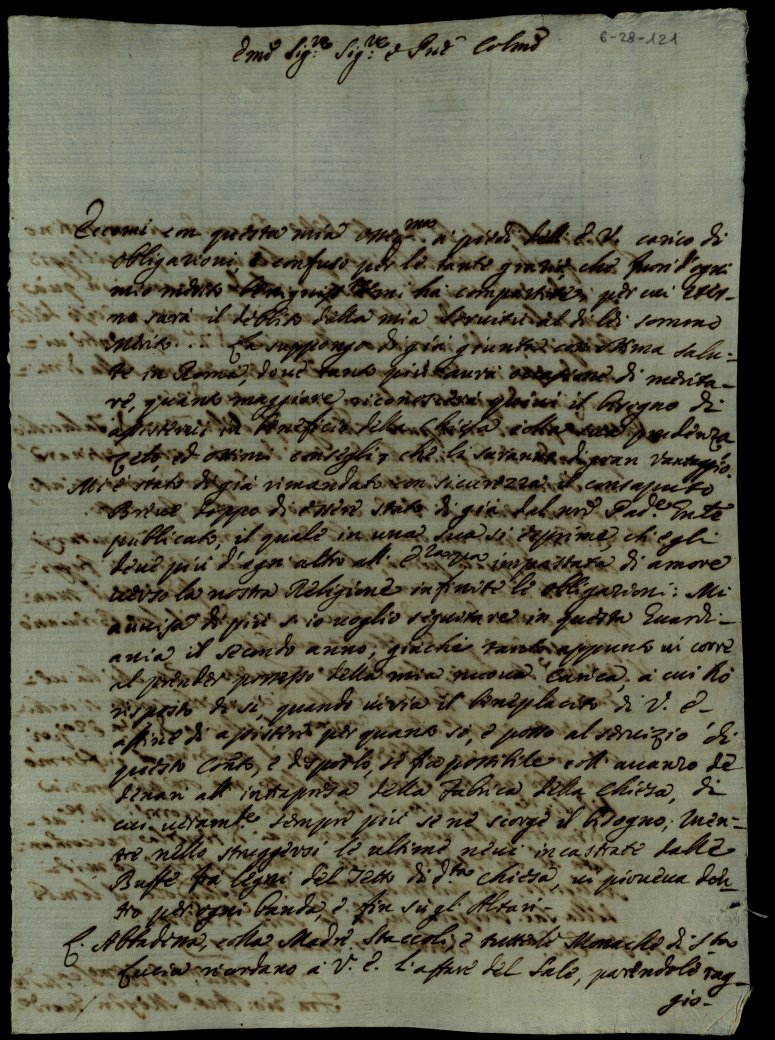 6-28-121
Emo Sig.re Sig.re e Pne Colmo
Eccomi con questa mia osseq.ma a piedi dell'E. V. carico di
obligazioni, e confuso per le tante grazie che fuori d'ogni
mio merito mi ha compartite, per cui eter-
no sarà il debito della mia servitù al di lei sommo
merito. La suppongo di già giunta con ottima salu-
te in Roma, dove tanto più haurà occasione di merita-
re, quanto maggiore riconoscerà il bisogno di
assisterci in beneficio della Chiesa colla sua prudenza
zelo, ed ottimi consegli, che li saranno di gran vantaggio.
Mi è stato di già rimandato con sicurezza il consaputo
Breve doppo di essere stato di già dal nro Pad.e
publicato, il quale in una sua si esprime, ch'egli
deve più d'ogni altro all' impastata di amore
verso la nostra Religione infinite le obligazioni: Mi
auuisa di più s'io voglio seguitare in questa Guardi-
ania il secondo anno, giache tanto appunto vi corre
al prender possesso della mia nuova Carica, a cui hò
risposto di sì, quando vi sia il beneplacito di V. E.
affine di assistere per quanto so, e posso al servizio di
questo Conto, e disporlo, se sia possibile coll'auanzo de
denari all'intrapresa della Fabrica della Chiesa, di
cui veram.te sempre più se ne scorge il bisogno, men-
tre nello struggersi le ultime nevi incastrate dalle
Buffe fra legni del Tetto di d.ta Chiesa, vi pioveva den-
tro per ogni banda, e fin sù gl'Altari.
L'Abbadessa, colla Madre Staccoli, e tutte le Monache di Sta
Lucia ricordano à V. E. l'affare del Sale, parendole rag-
gio-